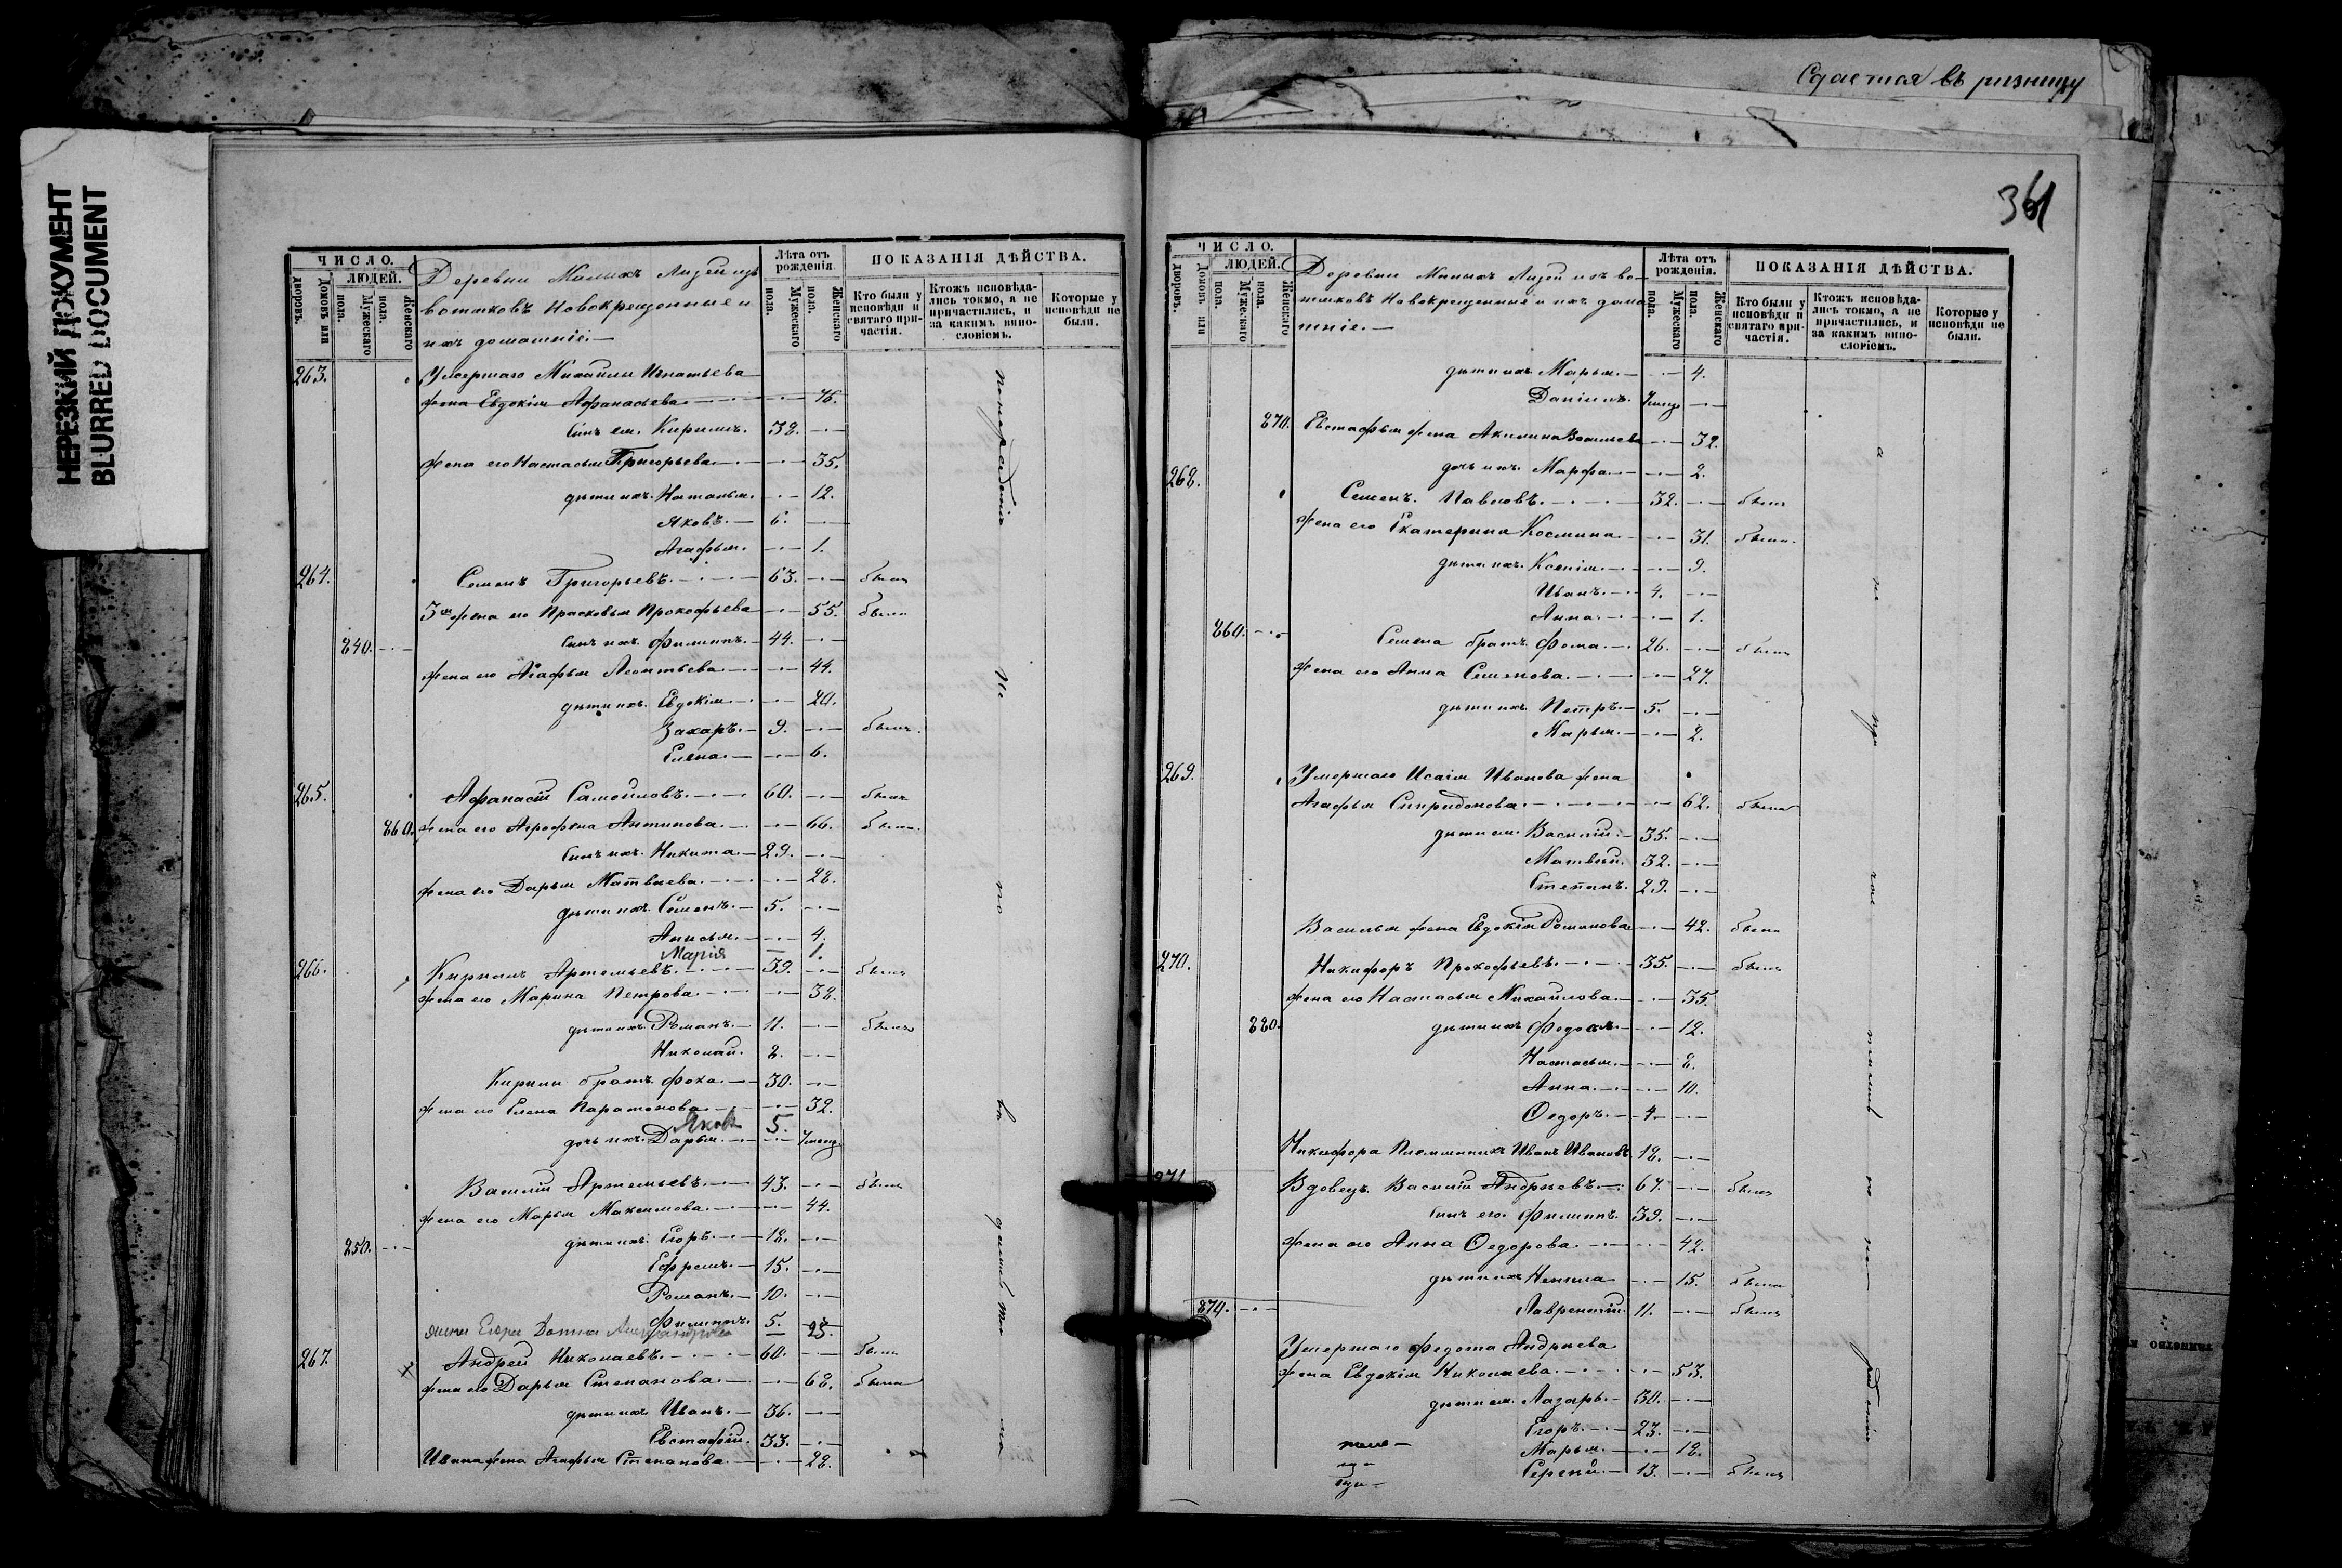 НЕРЕЗКИЙ ДОКУМЕНТ
BLURRED DOCUMENT
Сдается въ ризницу
361
ЧИСЛО.
ЛЮДЕЙ.
Дворовъ.
Домовъ или
Мужескаго пола.
Женскаго пола.
Лѣта отъ рожденія.
Мужескаго пола.
Женскаго пола.
ПОКАЗАНІЯ ДѢЙСТВА.
Кто были у исповѣди и святаго причастія.
Ктожъ исповѣдались токмо, а не причастились, и за какимъ винословіемъ.
Которые у исповѣди не были.
Деревни Малыхъ Лизей изъ
вотяковъ Новокрещенные и
ихъ домашніе.—
263. Умершаго Михаила Игнатьева
жена Евдокія Афанасьева — 76.
сынъ ея Кириллъ. 38. —
жена его Настасья Григорьева — 35.
дѣти ихъ Наталья. — 12.
Яковъ. 6. —
Агафья. — 1.
264. Семенъ Григорьевъ. 63. — былъ
3ая жена его Прасковья Прокофьева — 55. была
840. сынъ ихъ Филиппъ. 44. —
жена его Агафья Леонтьева — 44.
дѣти ихъ Евдокія. — 20.
Захаръ. 9. — былъ.
Елена. — 6.
265. Афанасій Самойловъ. 60. — былъ
860. жена его Агрофена Антипова. — 66. была.
сынъ ихъ Никита. 29. —
жена его Дарья Матвѣева. — 28.
дѣти ихъ Семенъ. 5. —
Анисья. — 4.
Марія — 1.
266. Кириллъ Артемьевъ. 39. — былъ
жена его Марина Петрова — 38.
дѣти ихъ Романъ. 11. — былъ
Николай. 8. —
Кирилы братъ Фока. 30. —
жена его Елена Парамонова — 32.
Яковъ 5.
дочь ихъ Дарья. —
Василій Артемьевъ. 43. — былъ
жена его Марья Максимова. — 44.
850. дѣти ихъ Егоръ. 18. —
Ефремъ. 15. —
Романъ. 10. —
Филиппъ. 5. —
жена Егора Домна — 23.
267. Андрей Николаевъ. 60. — былъ
жена его Дарья Степанова. — 68. была
дѣти ихъ Иванъ. 36. —
Евстафій. 33. —
Ивана жена Агафья Степанова. — 28.
понерадѣнію
ЧИСЛО.
ЛЮДЕЙ.
Дворовъ.
Домовъ или
Мужескаго пола.
Женскаго пола.
Лѣта отъ рожденія.
Мужескаго пола.
Женскаго пола.
ПОКАЗАНІЯ ДѢЙСТВА.
Кто были у исповѣди и святаго причастія.
Ктожъ исповѣдались токмо, а не причастились, и за какимъ винословіемъ.
Которые у исповѣди не были.
Деревни Малыхъ Лизей изъ во-
тяковъ Новокрещенные и ихъ дома-
шніе.—
дѣти ихъ Марья. — 4.
Даніилъ. —
870. Евстафья жена Акилина Васильева — 32.
дочь ихъ Марфа. — 2.
268. Семенъ Павловъ. 32. — былъ
жена его Екатерина Космина — 31. была.
дѣти ихъ Ксенія. — 9.
Иванъ. 4. —
Анна. — 1.
860. Семена братъ Фома. 26. — былъ
жена его Анна Семенова. — 27.
дѣти ихъ Петръ. 5. —
Марья. — 2.
269. Умершаго Исаія Иванова жена
Агафья Спиридонова. — 62. была
дѣти ея Василій. 35. —
Матвѣй. 32. —
Степанъ. 29. —
Василья жена Евдокія Романова — 42. была
270. Никифоръ Прокофьевъ. 35. — былъ
жена его Настасья Михайлова. — 35.
880. дѣти ихъ Федосья — 12.
Настасья. — 8.
Анна. — 10.
Ѳедоръ. 4 —
Никифора племянникъ Иванъ Ивановъ 18. —
271. Вдовецъ Василій Андреевъ. 67. — былъ
сынъ его Филиппъ. 39. —
жена его Анна Ѳедорова. — 42.
дѣти ихъ Ненила — 15. была
870. Лаврентій. 11. — былъ
Умершаго Федота Андреева
жена Евдокія Николаева. — 53.
дѣти ея Лазарь. 30. —
Егоръ. 23. —
Марья. — 18.
Сергей. 13. — былъ